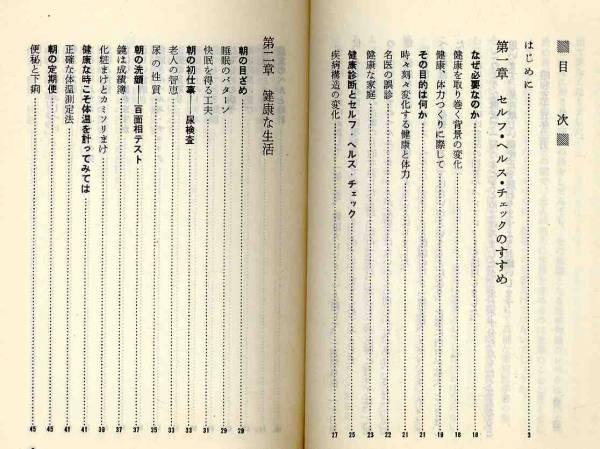 目次
はじめに 3
第一章 セルフ・ヘルス・チェックのすすめ
なぜ必要なのか 18
健康を取り巻く背景の変化 18
健康、体力つくりに際して 19
その目的は何か 21
時々刻々変化する健康と体力 21
名医の誤診 22
健康な家庭 23
健康診断とセルフ・ヘルス・チェック 25
疾病構造の変化 27
第二章 健康な生活
朝の目ざめ 29
睡眠のパターン 29
快眠を得る工夫 31
朝の初仕事──尿検査 33
老人の智恵 33
尿の性質 35
朝の洗顔──百面相テスト 37
鏡は成績簿 37
化粧まけとカミソリまけ 39
健康な時こそ体温を計ってみては 41
正確な体温測定法 41
朝の定期便 45
便秘と下痢 45